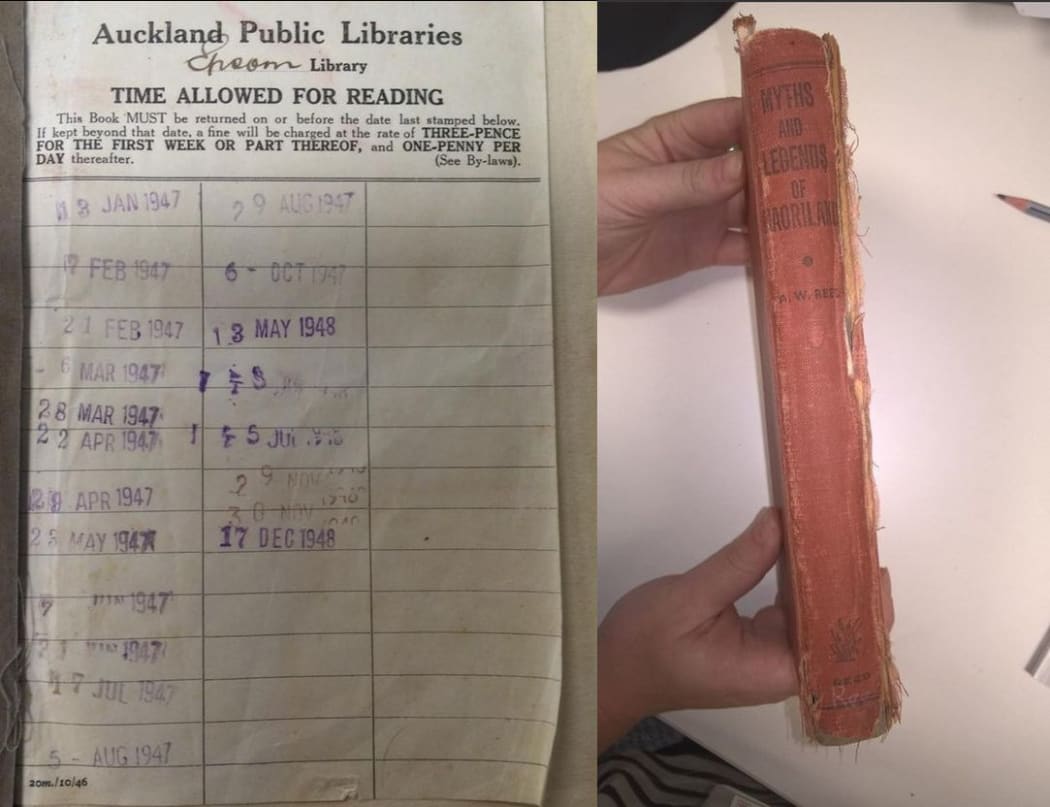 Auckland Public Libraries
Epsom Library
TIME ALLOWED FOR READING
This Book MUST be returned on or before the date last stamped below.
If kept beyond that date, a fine will be charged at the rate of THREE-PENCE
FOR THE FIRST WEEK OR PART THEREOF, and ONE-PENNY PER
DAY thereafter. (See By-laws).
JAN 1947
FEB 1947
21 FEB 1947
- 6 MAR 1947
28 MAR 1947
22 APR 1947
APR 1947
MAY 1947
7 1947
1947
17 JUL 1947
5 - AUG 1947
29 AUG 1947
6 - OCT 1947
13 MAY 1948
5 JUL
29 NOV
30 NOV
17 DEC 1948
20m./10/46
MYTHS
AND
LEGENDS
OF
MAORILAND
A. W. REED
REED